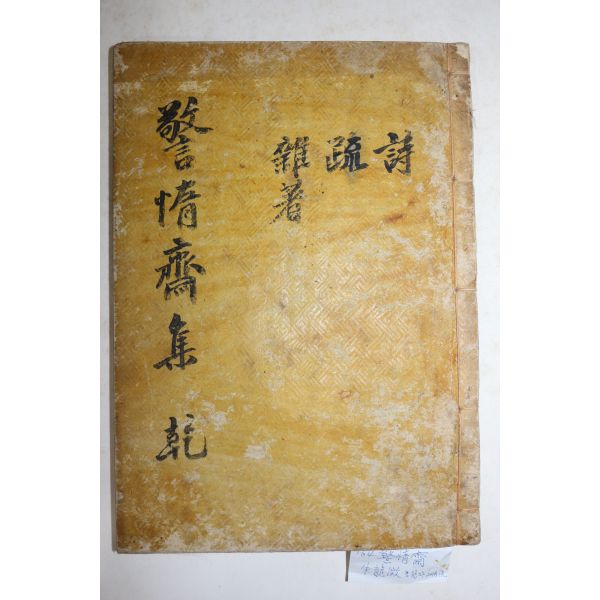 詩
疏
雜著
警惰齋集 乾
警惰齋